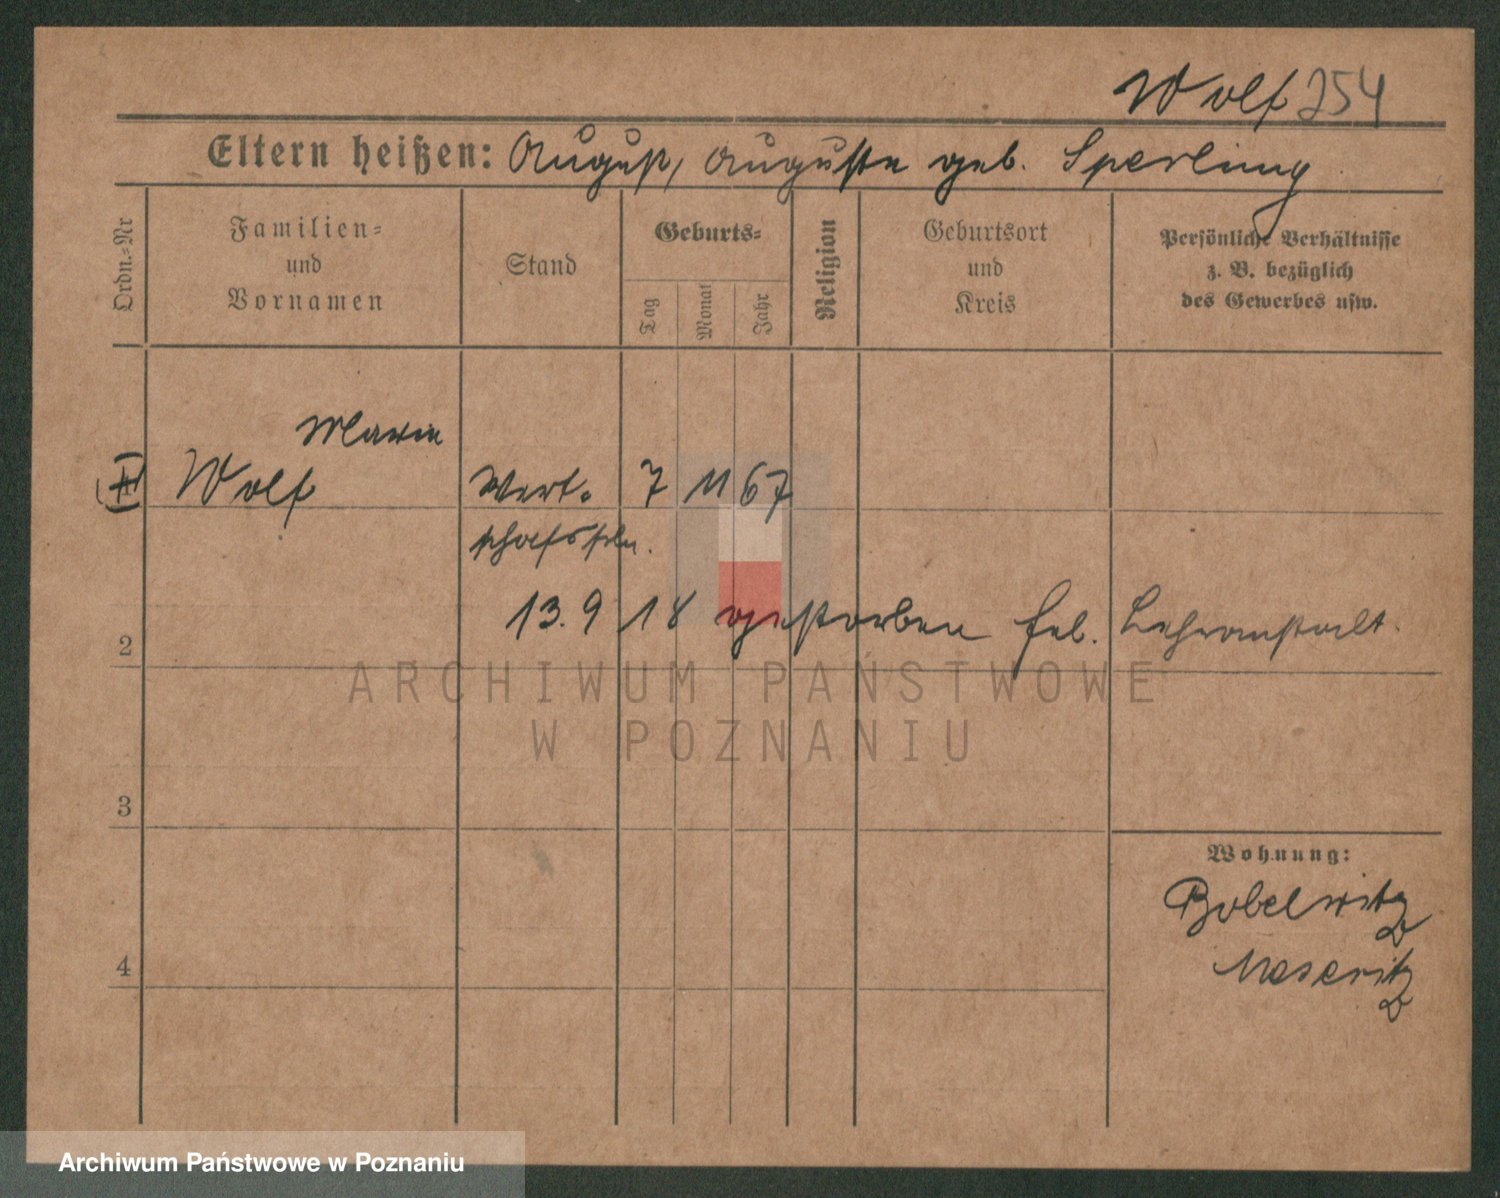 Wolf 254
Eltern heißen: August, Auguste geb. Sperling
Ordn.=Nr
Familien=
und
Vornamen
Stand
Geburts=
Tag
Monat
Jahr
Religion
Geburtsort
und
Kreis
Persönliche Verhältnisse
z. B. bezüglich
des Gewerbes usw.
Marie
Wolf
Wirt=
7 11 67
13. 9 18 gestorben Lehranstalt.
2
3
4
Wohnung:
Bobelwitz
Meseritz
ARCHIWUM PAŃSTWOWE
W POZNANIU
Archiwum Państwowe w Poznaniu